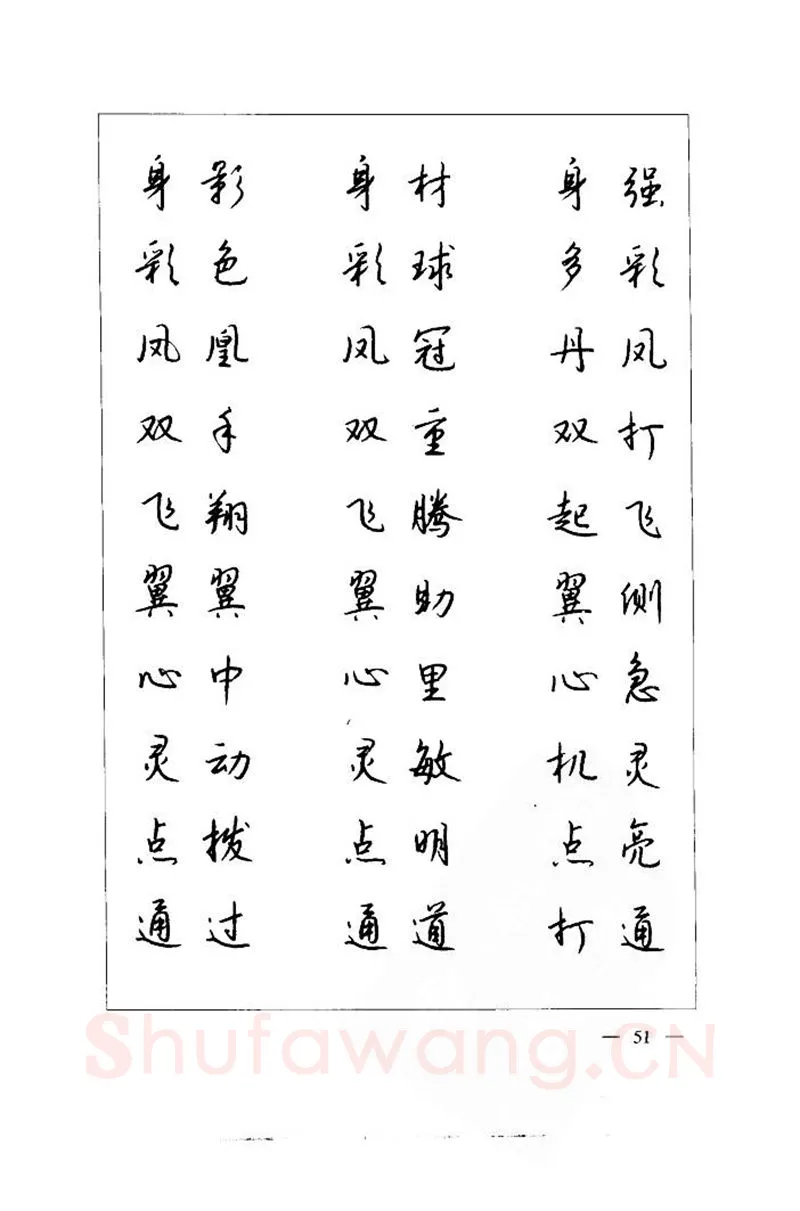 身影 身材 身强
彩色 彩球 多彩
凤凰 凤冠 丹凤
双手 双重 双打
飞翔 飞腾 起飞
翼翼 翼助 翼侧
心中 心里 心急
灵动 灵敏 机灵
点拨 点明 点亮
通过 通道 打通
— 51 —
Shufawang.CN